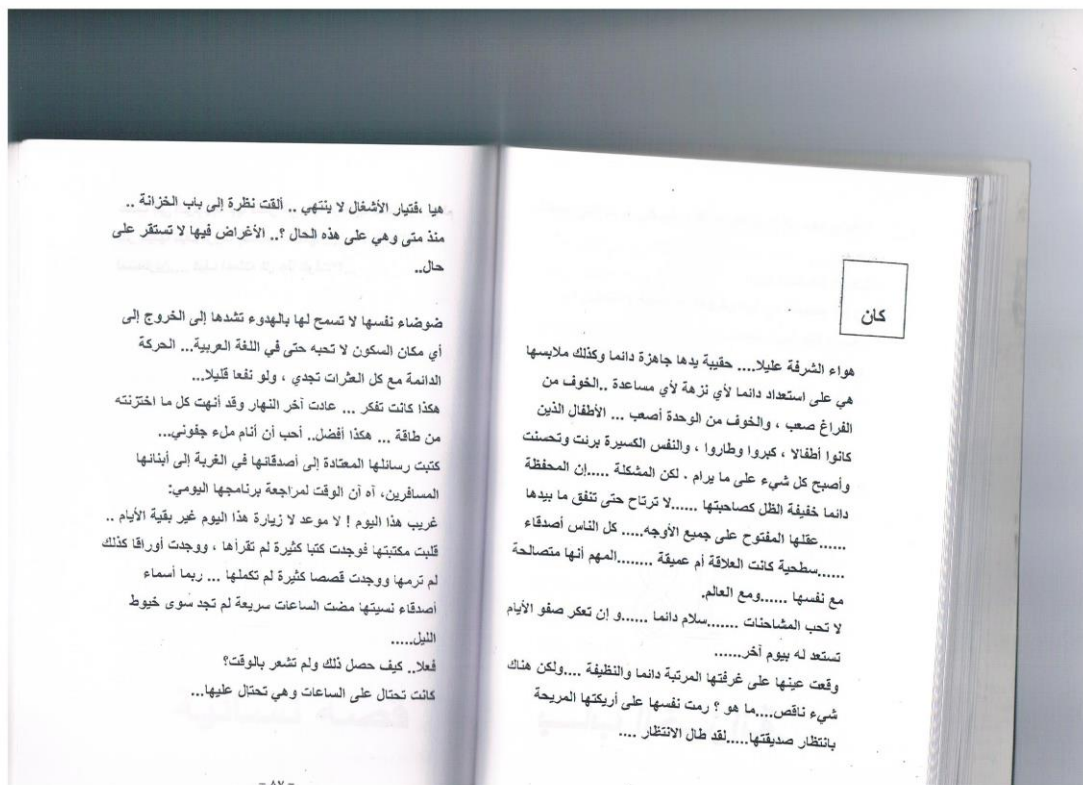 كان
هواء الشرفة عليلا.... حقيبة يدها جاهزة دائما وكذلك ملابسها
هي على استعداد دائما لأي نزهة لأي مساعدة ..الخوف من
الفراغ صعب ، والخوف من الوحدة أصعب ... الأطفال الذين
كانوا أطفالا ، كبروا وطاروا ، والنفس الكسيرة برئت وتحسنت
وأصبح كل شيء على ما يرام . لكن المشكلة .....إن المحفظة
دائما خفيفة الظل كصاحبتها ......لا ترتاح حتى تنفق ما بيدها
......عقلها المفتوح على جميع الأوجه..... كل الناس أصدقاء
......سطحية كانت العلاقة أم عميقة ........المهم أنها متصالحة
مع نفسها ......ومع العالم.
لا تحب المشاحنات .......سلام دائما ......و إن تعكر صفو الأيام
تستعد له بيوم آخر......
وقعت عينها على غرفتها المرتبة دائما والنظيفة ....ولكن هناك
شيء ناقص....ما هو ؟ رمت نفسها على أريكتها المريحة
بانتظار صديقتها.....لقد طال الانتظار ....
هيا ،فتيار الأشغال لا ينتهي .. ألقت نظرة إلى باب الخزانة ..
منذ متى وهي على هذه الحال ؟.. الأغراض فيها لا تستقر على
حال..
ضوضاء نفسها لا تسمح لها بالهدوء تشدها إلى الخروج إلى
أي مكان السكون لا تحبه حتى في اللغة العربية... الحركة
الدائمة مع كل العثرات تجدي ، ولو نفعا قليلا...
هكذا كانت تفكر ... عادت آخر النهار وقد أنهت كل ما اختزنته
من طاقة ... هكذا أفضل.. أحب أن أنام ملء جفوني...
كتبت رسائلها المعتادة إلى أصدقائها في الغربة إلى أبنائها
المسافرين، آه آن الوقت لمراجعة برنامجها اليومي:
غريب هذا اليوم ! لا موعد لا زيارة هذا اليوم غير بقية الأيام ..
قلبت مكتبتها فوجدت كتبا كثيرة لم تقرأها ، ووجدت أوراقا كذلك
لم ترمها ووجدت قصصا كثيرة لم تكملها ... ربما أسماء
أصدقاء نسيتها مضت الساعات سريعة لم تجد سوى خيوط
الليل.....
فعلا.. كيف حصل ذلك ولم تشعر بالوقت؟
كانت تحتال على الساعات وهي تحتال عليها...
- ٨٧ -